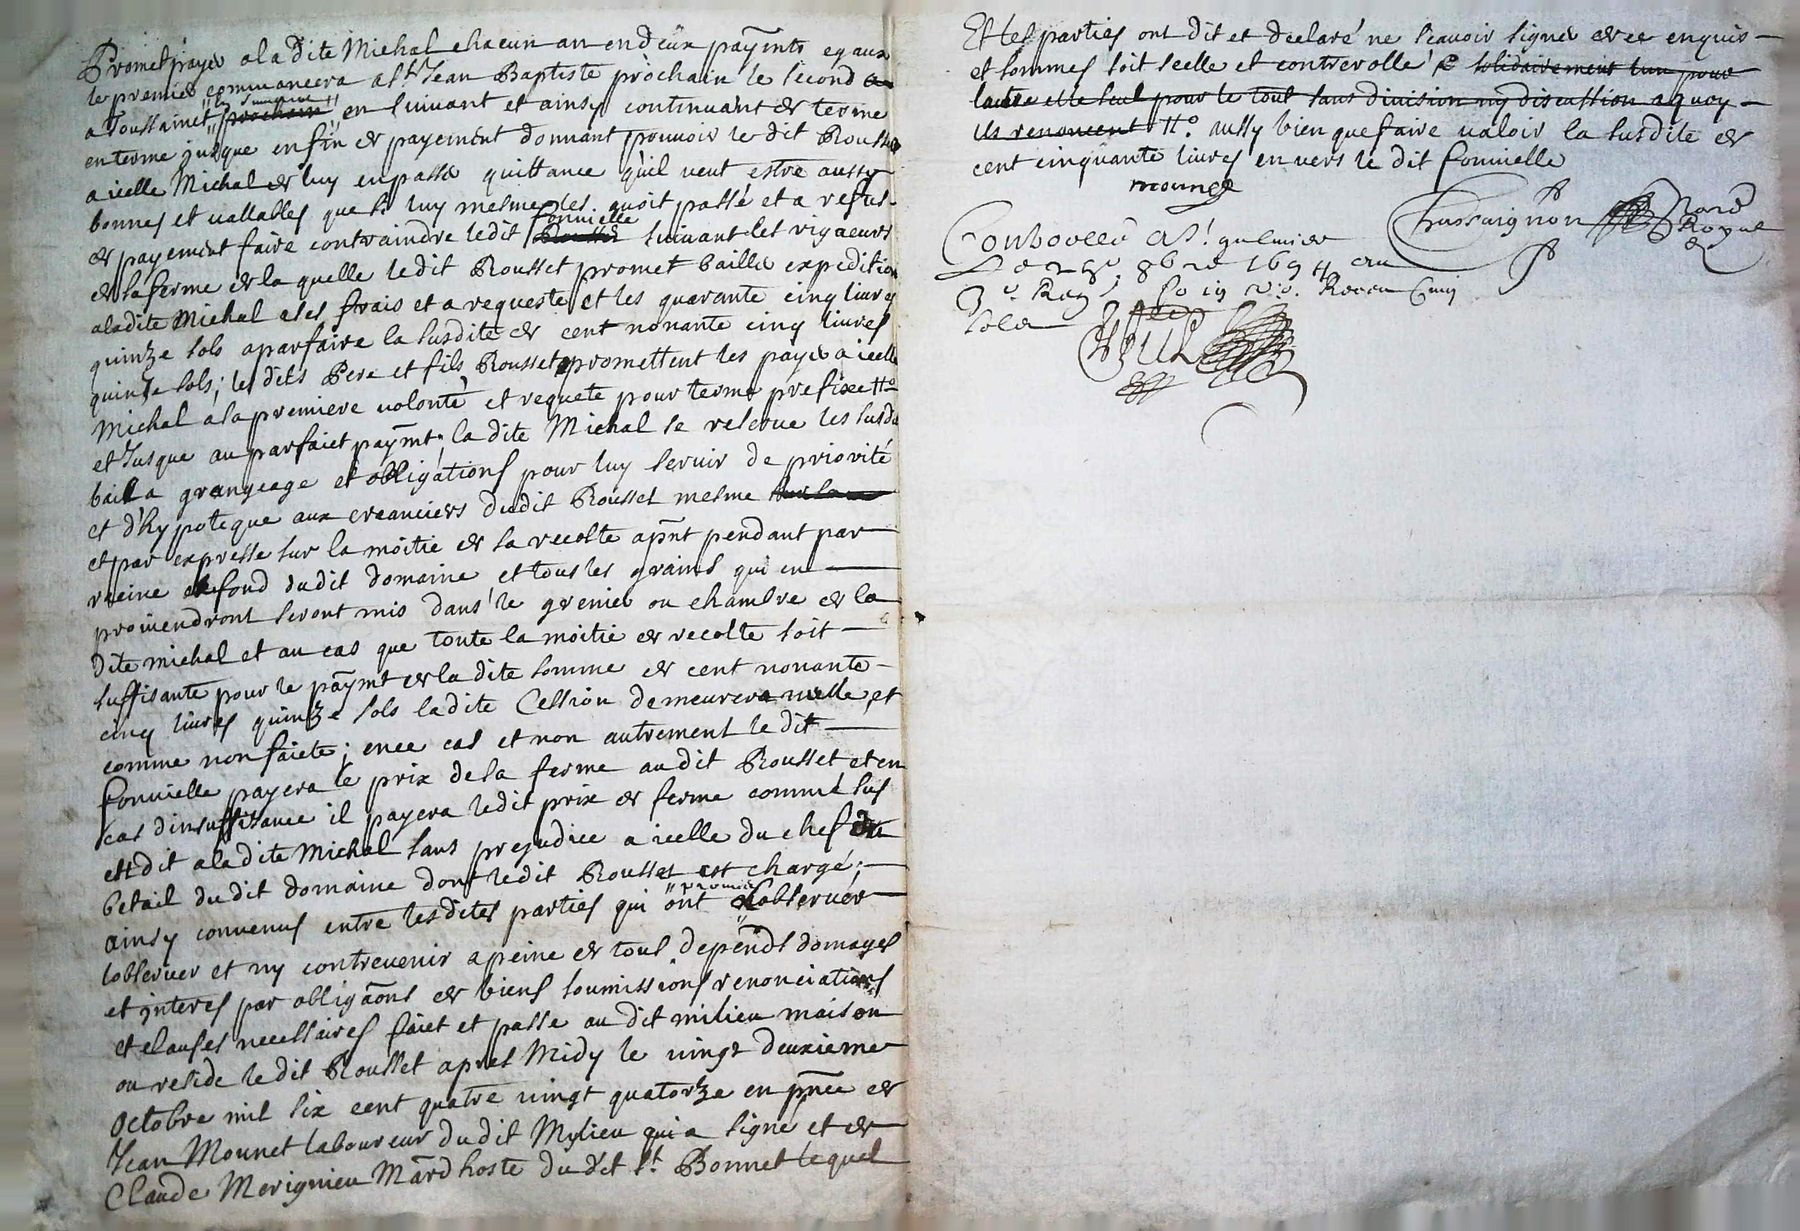 Promet payer a la dite Michal chacun an en deux payments egaux
le premier commancera a St Jean Baptiste prochain le second a
a Toussainct prochain en suivant et ainsy continuant de terme
en terme jusque en fin de payement donnant pouvoir le dit Rousset
a icelle Michal de luy en passer quittance qu'il veut estre aussy
bonnes et vallables que si luy mesme les avoit passé et a refus
de payement faire contraindre ledit Rousset fonvielle suivant les rigueurs
de la ferme de la quelle ledit Rousset promet bailler expedition
a la dite Michal a ses frais et a requeste et les quarante cinq livres
quinze sols a parfaire la susdite de cent nonante cinq livres
quinze sols; les dits Pere et fils Rousset promettent les payer a icelle
Michal a la premiere volonté et requete pour terme prefixe Ho
et Jusque au parfaict payment la dite Michal se reserve les susd
bail a grangeage et obligations pour luy servir de priorité
et d'hypoteque aux creanciers dudit Rousset mesme
et par expresse sur la moitié de la recolte apnt pendant par
racine et fond dudit domaine et tous les grains qui en
proviendront seront mis dans le grenier ou chambre de la
dite michal et au cas que toute la moitié de recolte soit
suffisante pour le paymt de la dite somme de cent nonante
cinq livres quinze sols la dite Cession demeurera nulle et
comme non faicte; en ce cas et non autrement le dit
fonvielle payera le prix de la ferme au dit Rousset et en
cas d'insuffisance il payera ledit prix de ferme comme sus
est dit a la dite Michal sans prejudice a icelle du chef du
betail du dit domaine dont ledit Rousset est chargé;
ainsy convenus entre les dites parties qui ont promis l'observer
lobserver et ny contrevenir a peine de tous depends domages
et interes par obligaons de biens soumissions renonciations
et clauses necessaires faict et passe au dit milieu maison
ou reside le dit Rousset apres Midy le vingt deuxieme
octobre mil six cent quatre vingt quatorze en pnce de
Jean Mounet laboureur du dit Mylieu qui a signe et de
Claude Merignieu Mard hoste du dit St Bonnet lequel
Et les parties ont dit et declaré ne scavoir signer de ce enquis
et sommes soit scelle et controrolle solidairement lun pour
lautre elle seul pour le tout sans division ny discussion a quoy
ils renoncent Ho. aussy bien que faire valoir la susdite de
cent cinquante livres en vers le dit fonvielle
mounet
Chassaignon Nore Royal
Controolle a St galmier
Le 25e 8bre 1694 au
3e Reg fo Recu cinq
sols